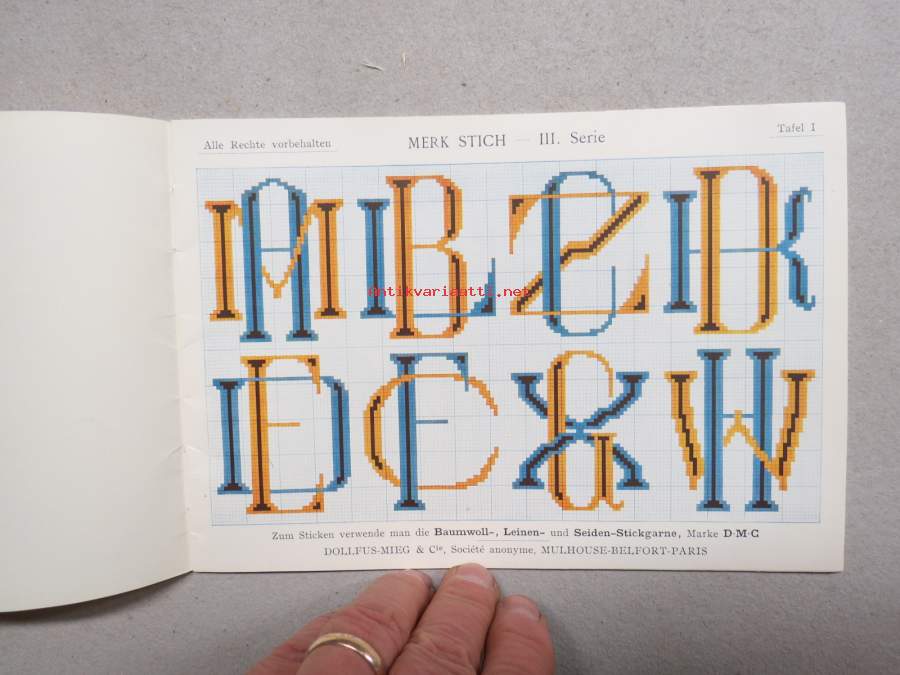 Alle Rechte vorbehalten
MERK STICH — III. Serie
Tafel I
M A L B Z O K D
D E C F X G W H
antikvariaatti.net
Zum Sticken verwende man die Baumwoll-, Leinen- und Seiden-Stickgarne, Marke D·M·C
DOLLFUS-MIEG & Cie, Société anonyme, MULHOUSE-BELFORT-PARIS